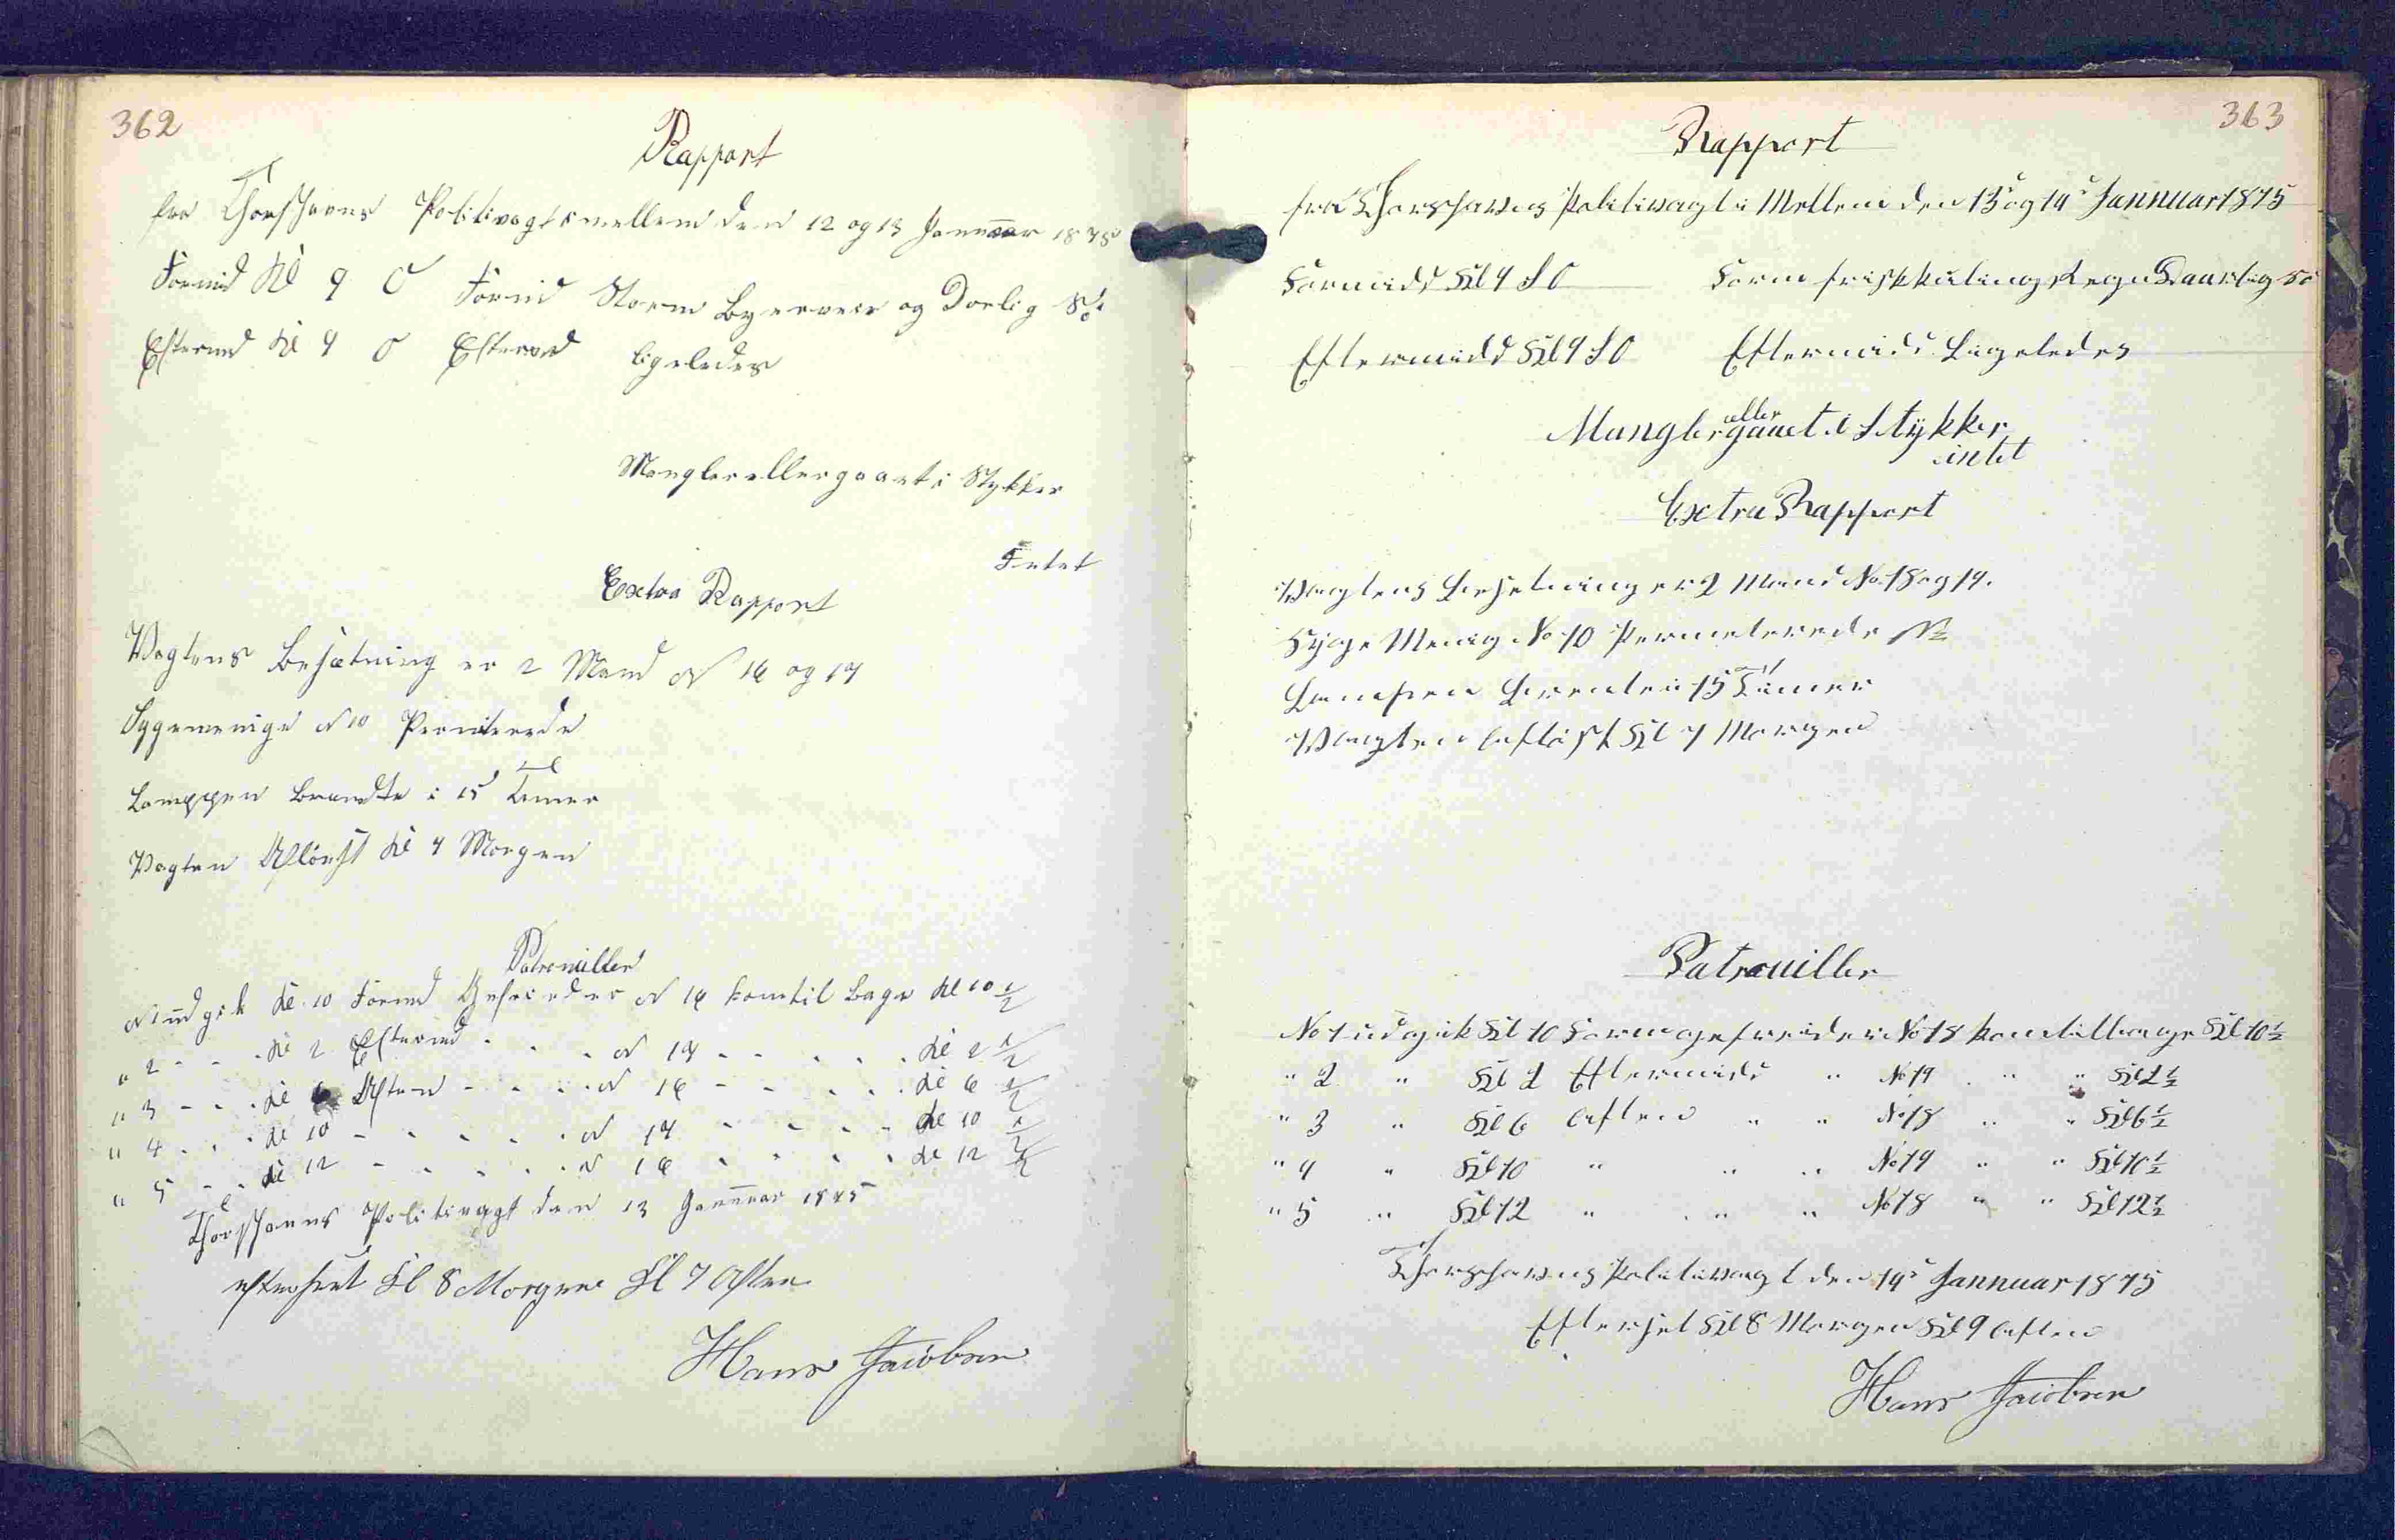 362
Rapport
fra Thorshavns Politivagt imellem den 12 og 13 Januar 1875
Formid Kl 9 O Formid Storm Byerveir og Dorlig Sö
Eftermd Kl 4 O Eftermd ligeledes
Mangler eller gaaet i Stykker
Intet
Extra Rapport
Vagtens Besætning er 2 Mand N 16 og 17
Sygemenige N 10 Permiterede
Lamppen Brandte i 15 Timer
Vagten Aflöust Kl 9 Morgen
Patrouiller
N 1 udgik Kl 10 Formd Gefreider N 16 kom til bage Kl 10 1/2
" 2 - - - Kl 2 Eftermd - - - N 17 - - - - - Kl 2 1/2
" 3 - - - Kl 6 Aften - - - N 16 - - - - - Kl 6 1/2
" 4 - - - Kl 10 - - - - - N 17 - - - - - Kl 10 1/2
" 5 - - - Kl 12 - - - - - N 16 - - - - - Kl 12 1/2
Thorshavns Politivagt den 13 Januar 1875
efterseet Kl 8 Morgen Kl 9 Aften
Hans Jacobsen
363
Rapport
fra Thorshavns Politivagt i Mellem den 13d og 14d Jannuar 1875
Formidd Kl 9 SO Form frisk kuling Regn Daarlig sö
Eftermidd Kl 4 SO Eftermidd Ligeledes
Mangler eller gaaet i Stykker
intet
Extra Rapport
Vagtens Besetning er 2 Mand No 18 og 19.
Syge Menig No 10 Permeterede
Lampen Brente i 15 Timer
Vagten Aflöst Kl 9 Morgen
Patrouiller
No 1 udgik Kl 10 Form gefreider No 18 kom tilbage Kl 10 1/2
" 2 " Kl 2 Eftermidd " No 19 " " Kl 2 1/2
" 3 " Kl 6 Aften " " No 18 " " Kl 6 1/2
" 4 " Kl 10 " " " No 19 " " Kl 10 1/2
" 5 " Kl 12 " " " No 18 " " Kl 12 1/2
Thorshavns Politivagt den 14d Jannuar 1875
Efterset Kl 8 Morgen Kl 9 Aften
Hans Jacobsen